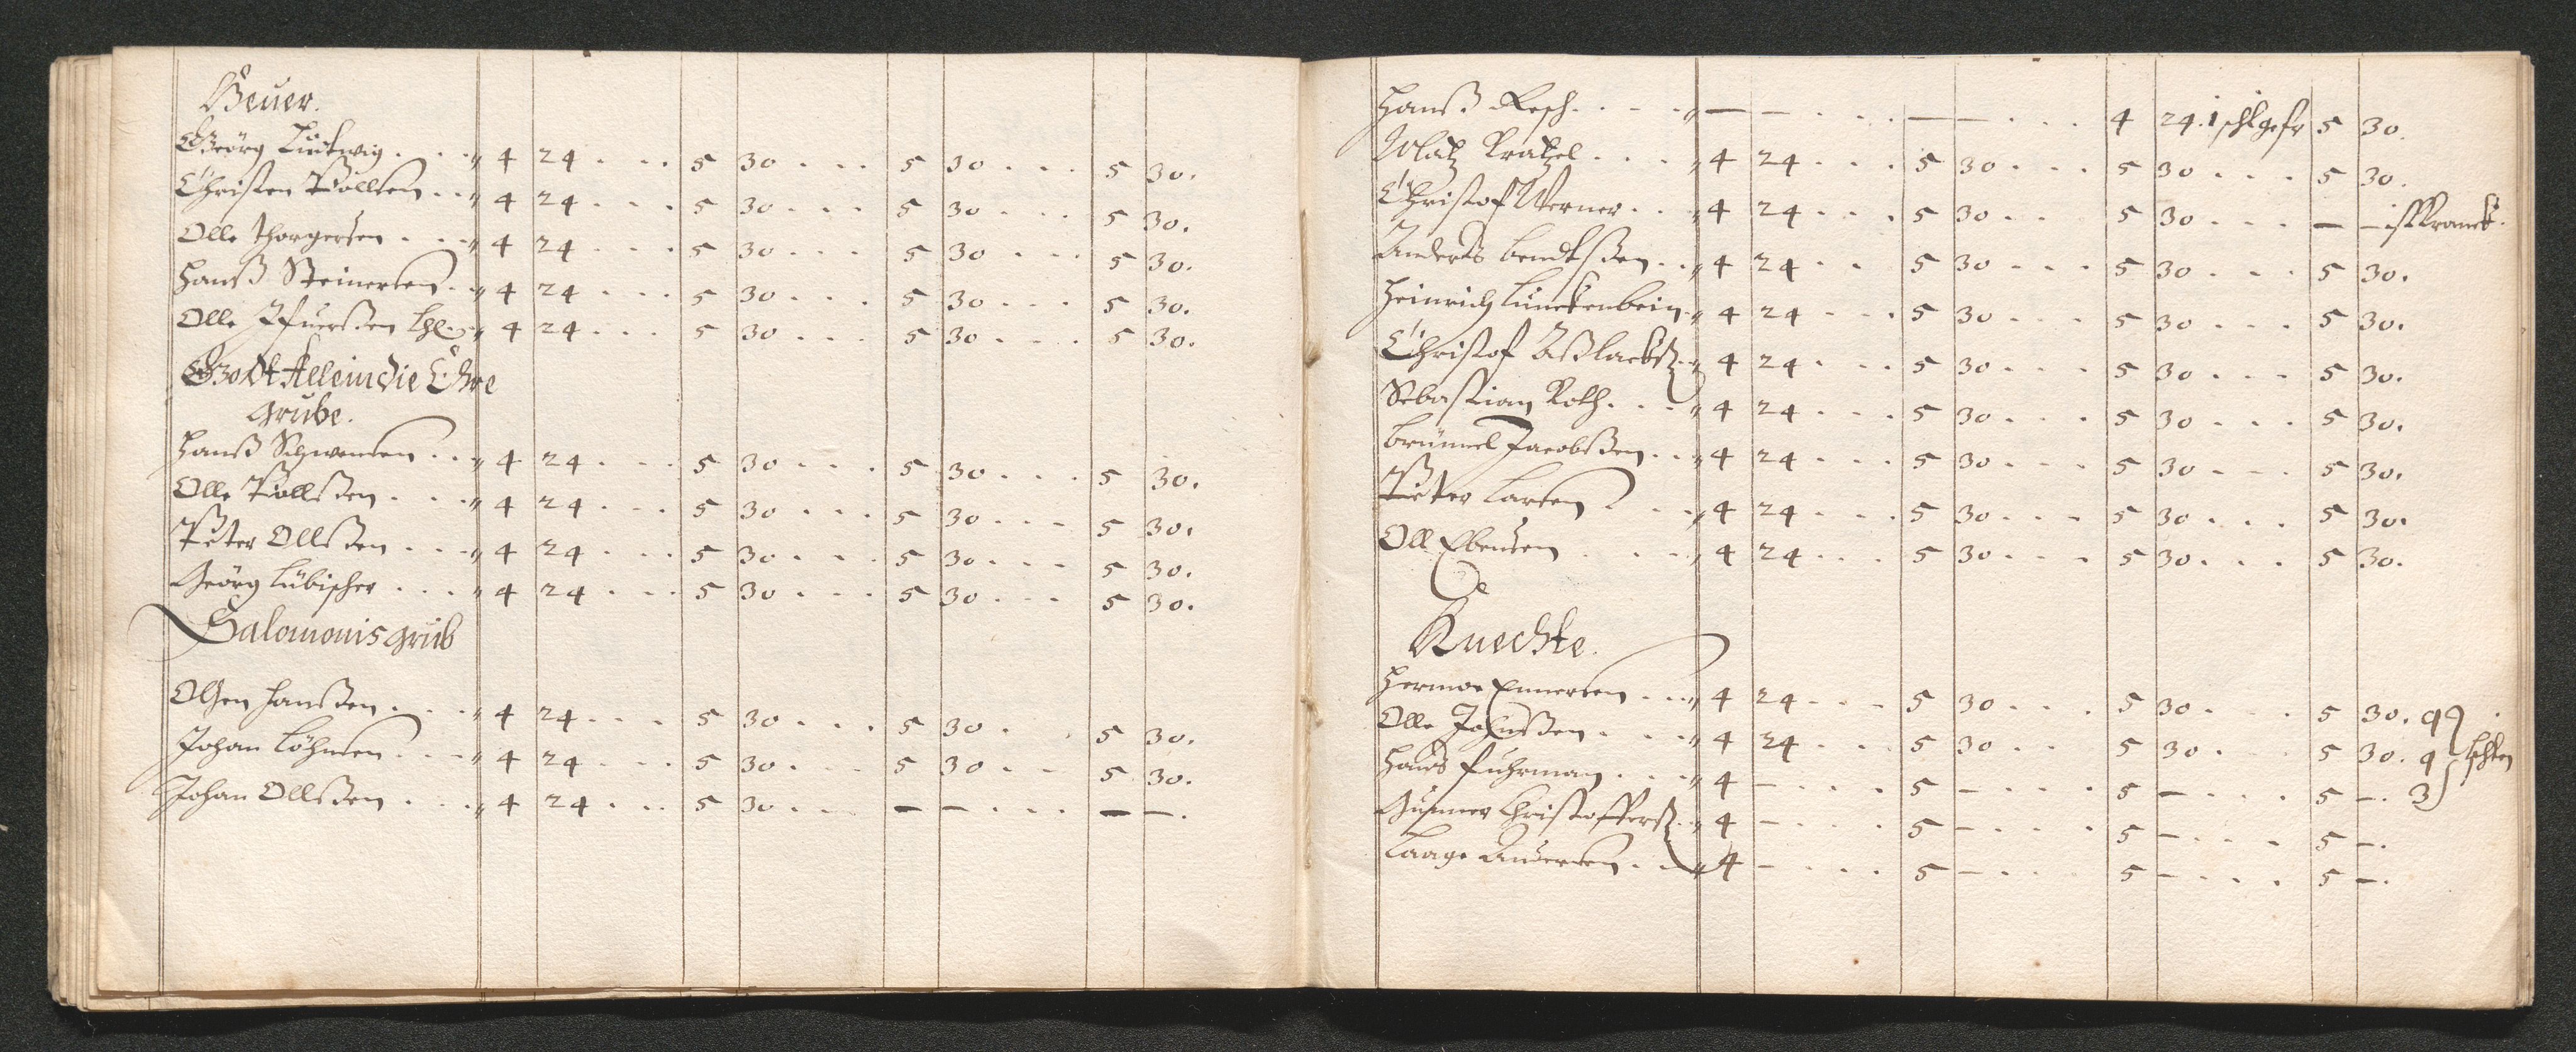 Beuer.
Georg Ludtwig . . . " 4 24 . . . 5 30 . . . 5 30 . . . 5 30.
Christen Pollsen . . " 4 24 . . . 5 30 . . . 5 30 . . . 5 30.
Olle Thorgersen . . . " 4 24 . . . 5 30 . . . 5 30 . . . 5 30.
Hanß Steinersen . . " 4 24 . . . 5 30 . . . 5 30 . . . 5 30.
Olle " 4 24 . . . 5 30 . . . 5 30 . . . 5 30.
Gott Allein die Ehre
Grube.
Hanß Schwensen . . " 4 24 . . . 5 30 . . . 5 30 . . . 5 30.
Olle Pollßen . . . " 4 24 . . . 5 30 . . . 5 30 . . . 5 30.
Peter Ollßen . . . " 4 24 . . . 5 30 . . . 5 30 . . . 5 30.
Georg Lübischer . . . " 4 24 . . . 5 30 . . . 5 30 . . . 5 30.
Salomonis grub
Olßen Hanßen . . . " 4 24 . . . 5 30 . . . 5 30 . . . 5 30.
Johan Löhnsen . . . " 4 24 . . . 5 30 . . . 5 30 . . . 5 30.
Johan Ollßen . . . " 4 24 . . . 5 30 . . . — — . . . — —.
Hanß Resch . . . . " — — . . . — — . . . 4 24. 1 schl gefr 5 30.
Matz Kratzel . . . " 4 24 . . . 5 30 . . . 5 30 . . . 5 30.
Christof Werner . . " 4 24 . . . 5 30 . . 5 30 . . . — — ist Kranck.
Anders Bendtßen . . " 4 24 . . 5 30 . . . 5 30 . . . 5 30.
Heinrich Lünckenbein " 4 24 . . . 5 30 . . . 5 30 . . . 5 30.
Christof Aßlackß. " 4 24 . . . 5 30 . . . 5 30 . . . 5 30.
Sebastian Roth . . . " 4 24 . . . 5 30 . . . 5 30 . . . 5 30.
Brünnel Jacobßen . . " 4 24 . . . 5 30 . . . 5 30 . . . 5 30.
Peter Larsen . . " 4 24 . . . 5 30 . . . 5 30 . . . 5 30.
Oll Ebensen . . . " 4 24 . . . 5 30 . . . 5 30 . . . 5 30.
Knechte.
Hermoe Ennersen . . " 4 24 . . . 5 30 . . . 5 30 . . . 5 30. 9
Olle Johnßen . . . " 4 24 . . . 5 30 . . 5 30 . . . 5 30. 9 schten
Hanß Fuhrman . . . " 4 — . . . 5 — . . . 5 — . . . 5 —. 3
Gunner Christofferß. " 4 — . . . 5 — . . . 5 — . . . 5 —.
Laage Andersen . . " 4 — . . . 5 — . . 5 — . . . 5 —.